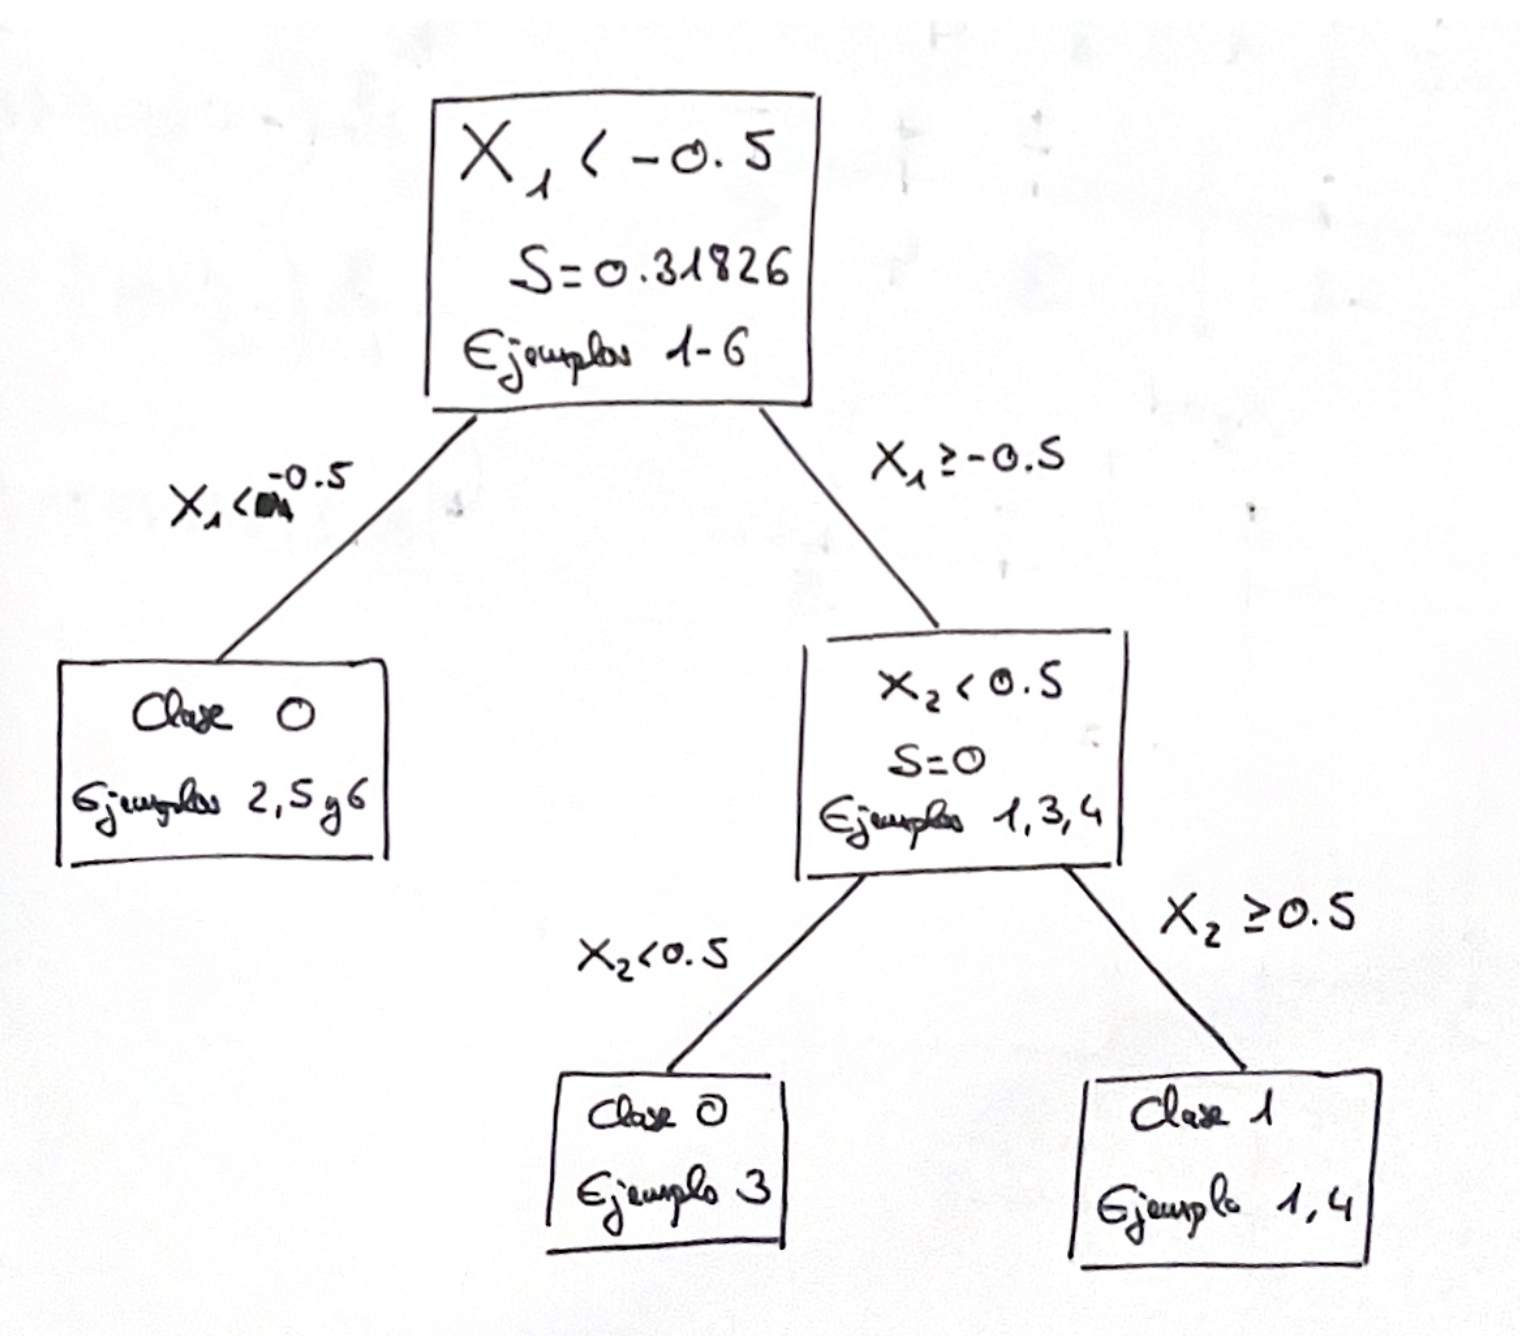 X₁ < -0.5
S=0.31826
Ejemplos 1-6
X₁ < -0.5
X₁ ≥ -0.5
Clase 0
Ejemplos 2,5 y 6
X₂ < 0.5
S=0
Ejemplos 1,3,4
X₂ < 0.5
X₂ ≥ 0.5
Clase 0
Ejemplo 3
Clase 1
Ejemplo 1,4